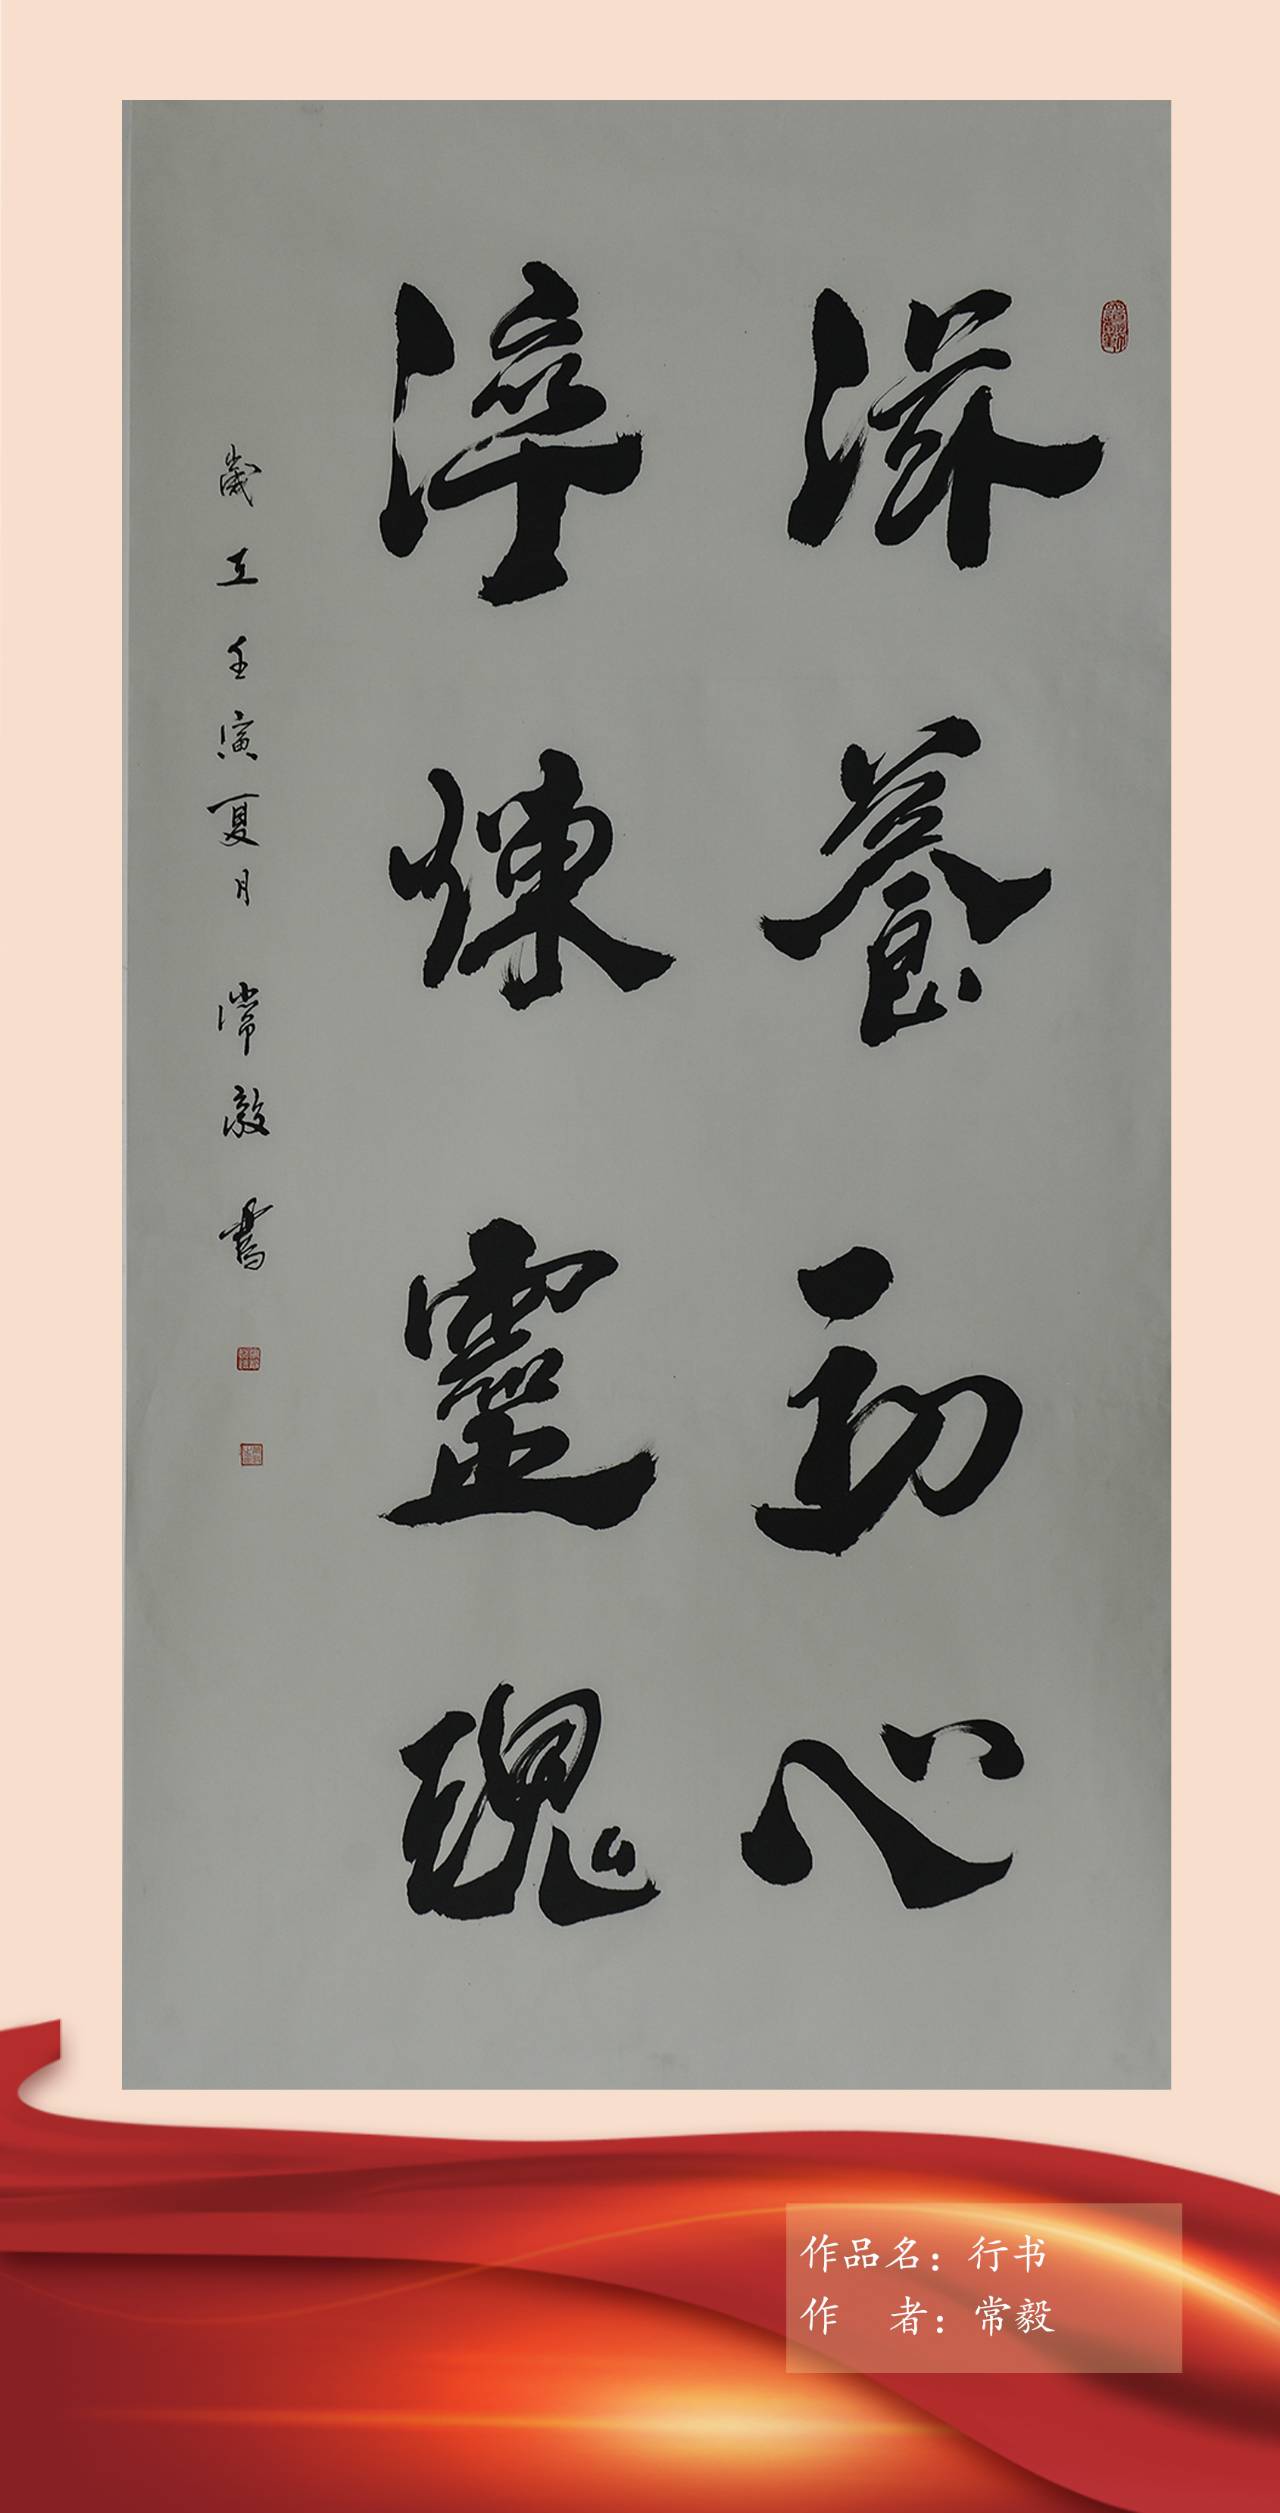 滋養初心
淬煉靈魂
歲在壬寅夏月 常毅書
作品名：行书
作 者：常毅